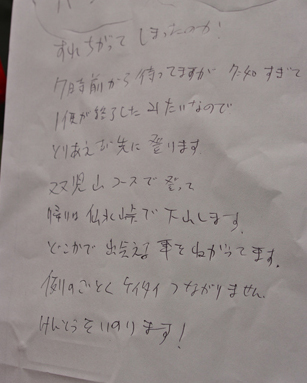 すれちがって しまったのか!
7時前から 待ってますが 7:40 すぎて
1便が終了したみたいなので
とりあえず先に登ります
双児山コースで登って
帰りは仙水峠で下山します。
どこかで出会える事をねがってます。
例のごとくケイタイつながりません。
けんとうをいのります!